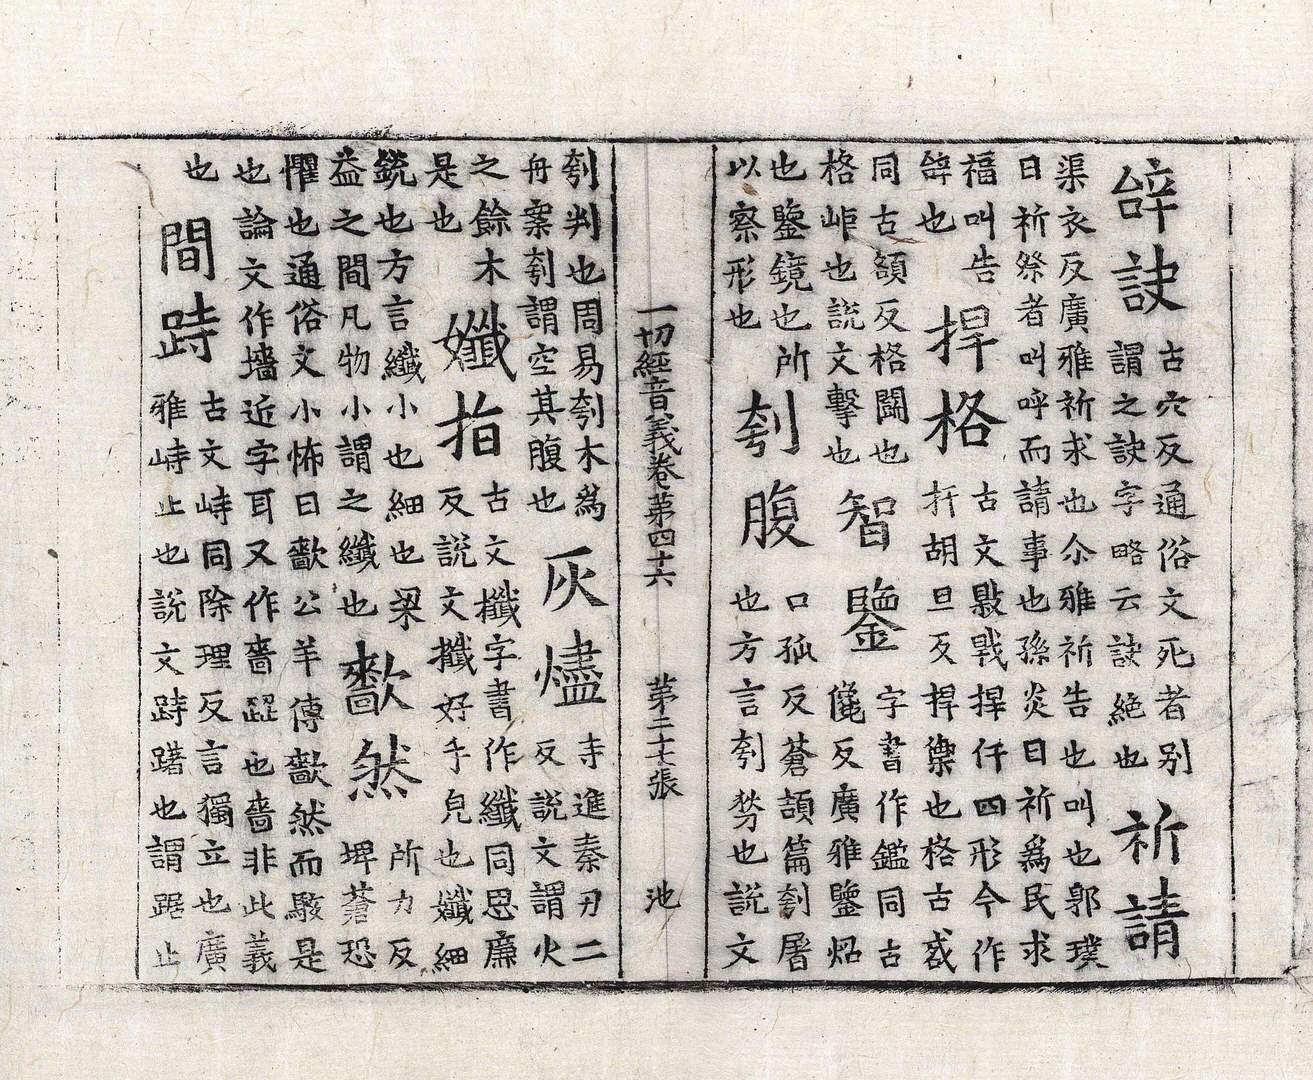 辝訣
古穴反通俗文死者别
謂之訣字略云訣絕也
祈請
渠衣反廣雅祈求也尒雅祈告也叫也郭璞
曰祈祭者叫呼而請事也孫炎曰祈爲民求
福叫告
辝也
捍格
古文㪋戰捍仟四形今作
扞胡旦反捍禦也格古惑
同古頟反格鬪也
格岠也說文擊也
智鑒
字書作鑑同古
儳反廣雅鑒炤
也鑒鏡也所
以察形也
刳腹
口孤反蒼頡篇刳屠
也方言刳剺也說文
一切經音義卷第四十六 第二十七張 池
刳判也周易刳木爲
舟案刳謂空其腹也
灰燼
寺進秦刃二
反說文謂火
之餘木
是也
孅指
古文攕字書作纖同思廉
反說文攕好手皃也孅細
銳也方言纖小也細也梁
益之間凡物小謂之纖也
㱇然
所力反
埤蒼恐
懼也通俗文小怖曰㱇公羊傳㱇然而駭是
也論文作墻近字耳又作嗇歰也嗇非此義
也
間跱
古文峙同除理反言獨立也廣
雅峙止也說文跱躇也謂踞止